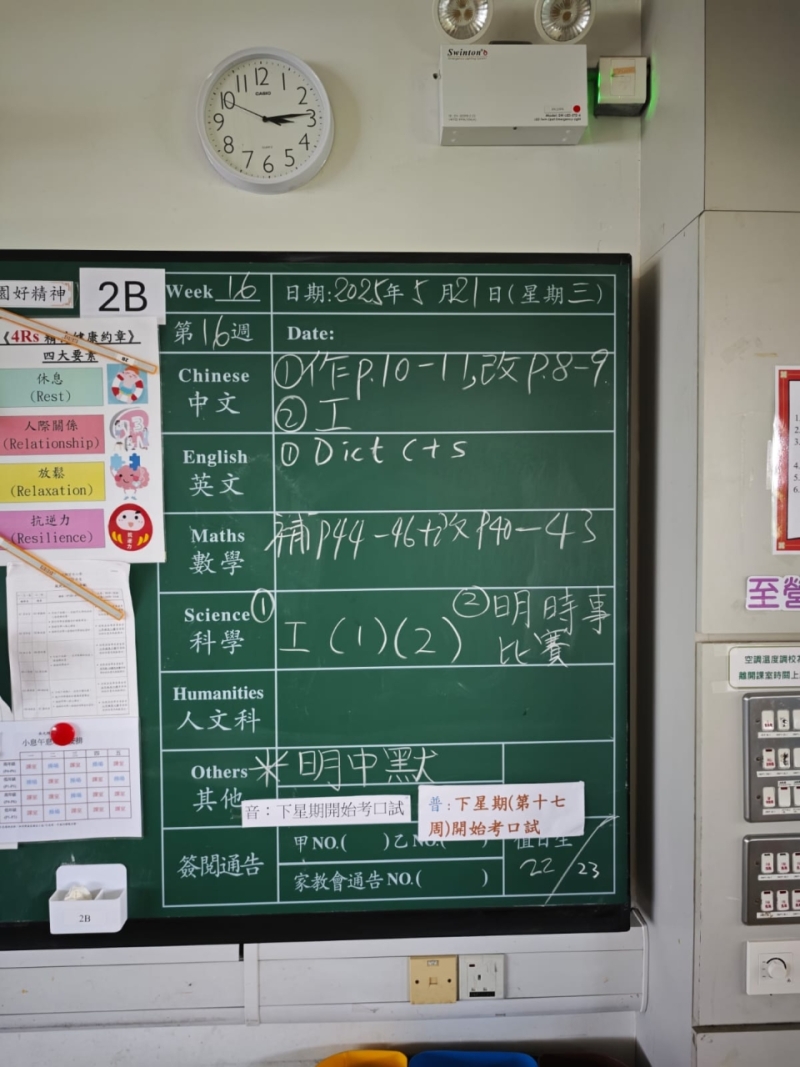 12
11
1
10
2
9
3
8
4
7
5
6
CASIO
Swinton
園好精神
2B
Week 16
日期:2025年5月21日(星期三)
第16週
Date:
《4Rs 精神健康約章》
四大要素
休息
(Rest)
人際關係
(Relationship)
放鬆
(Relaxation)
抗逆力
(Resilience)
抗逆力
Chinese
中文
①作p.10-11,改p.8-9
②工
English
英文
① Dict C+s
Maths
數學
補p44-46+改p40-43
Science
科學
① 工(1)(2)
②明時事
比賽
Humanities
人文科
Others
其他
*明中默
音：下星期開始考口試
普：下星期(第十七
周)開始考口試
簽閱通告
甲NO.( )乙NO.( )
家教會通告NO.( )
值日生
22/23
2B
至營
空調溫度調校為
離開課室時關上